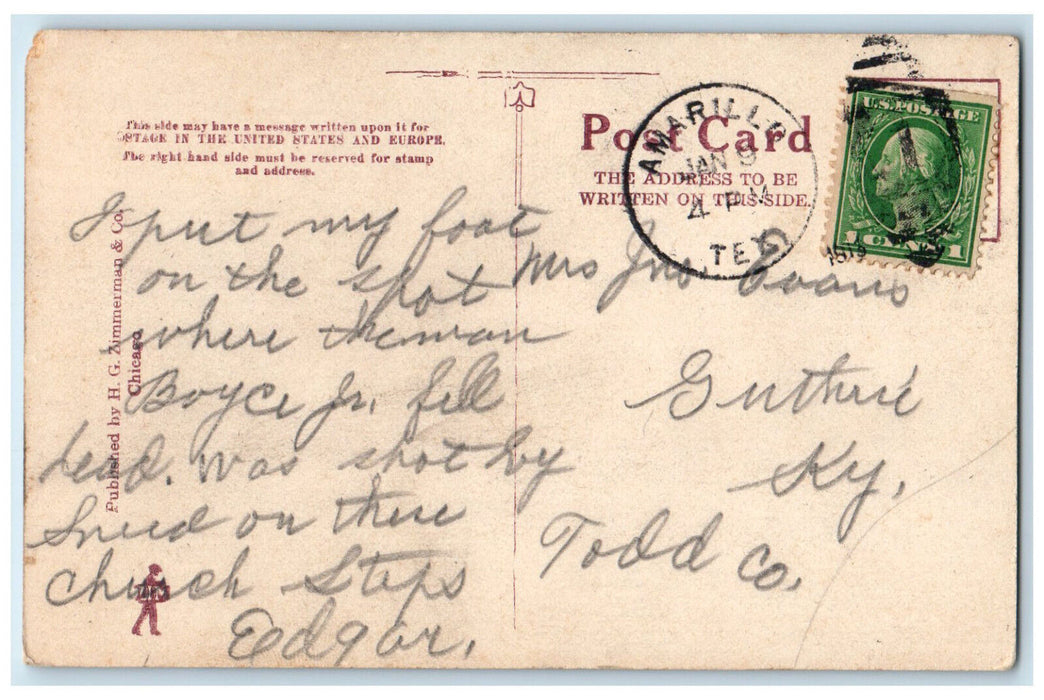 This side may have a message written upon it for
POSTAGE IN THE UNITED STATES AND EUROPE.
The right hand side must be reserved for stamp
and address.
Post Card
THE ADDRESS TO BE
WRITTEN ON THIS SIDE.
AMARILLO
JAN 9
4 PM
TEX
1913
U.S. POSTAGE
1 CENT 1
Published by H. G. Zimmerman & Co.
Chicago
I put my foot
on the spot
where the man
Boyce Jr. fell
dead. was shot by
Sneed on these
church steps
Edgar.
Mrs Jno Evans
Guthrie
Ky,
Todd Co.